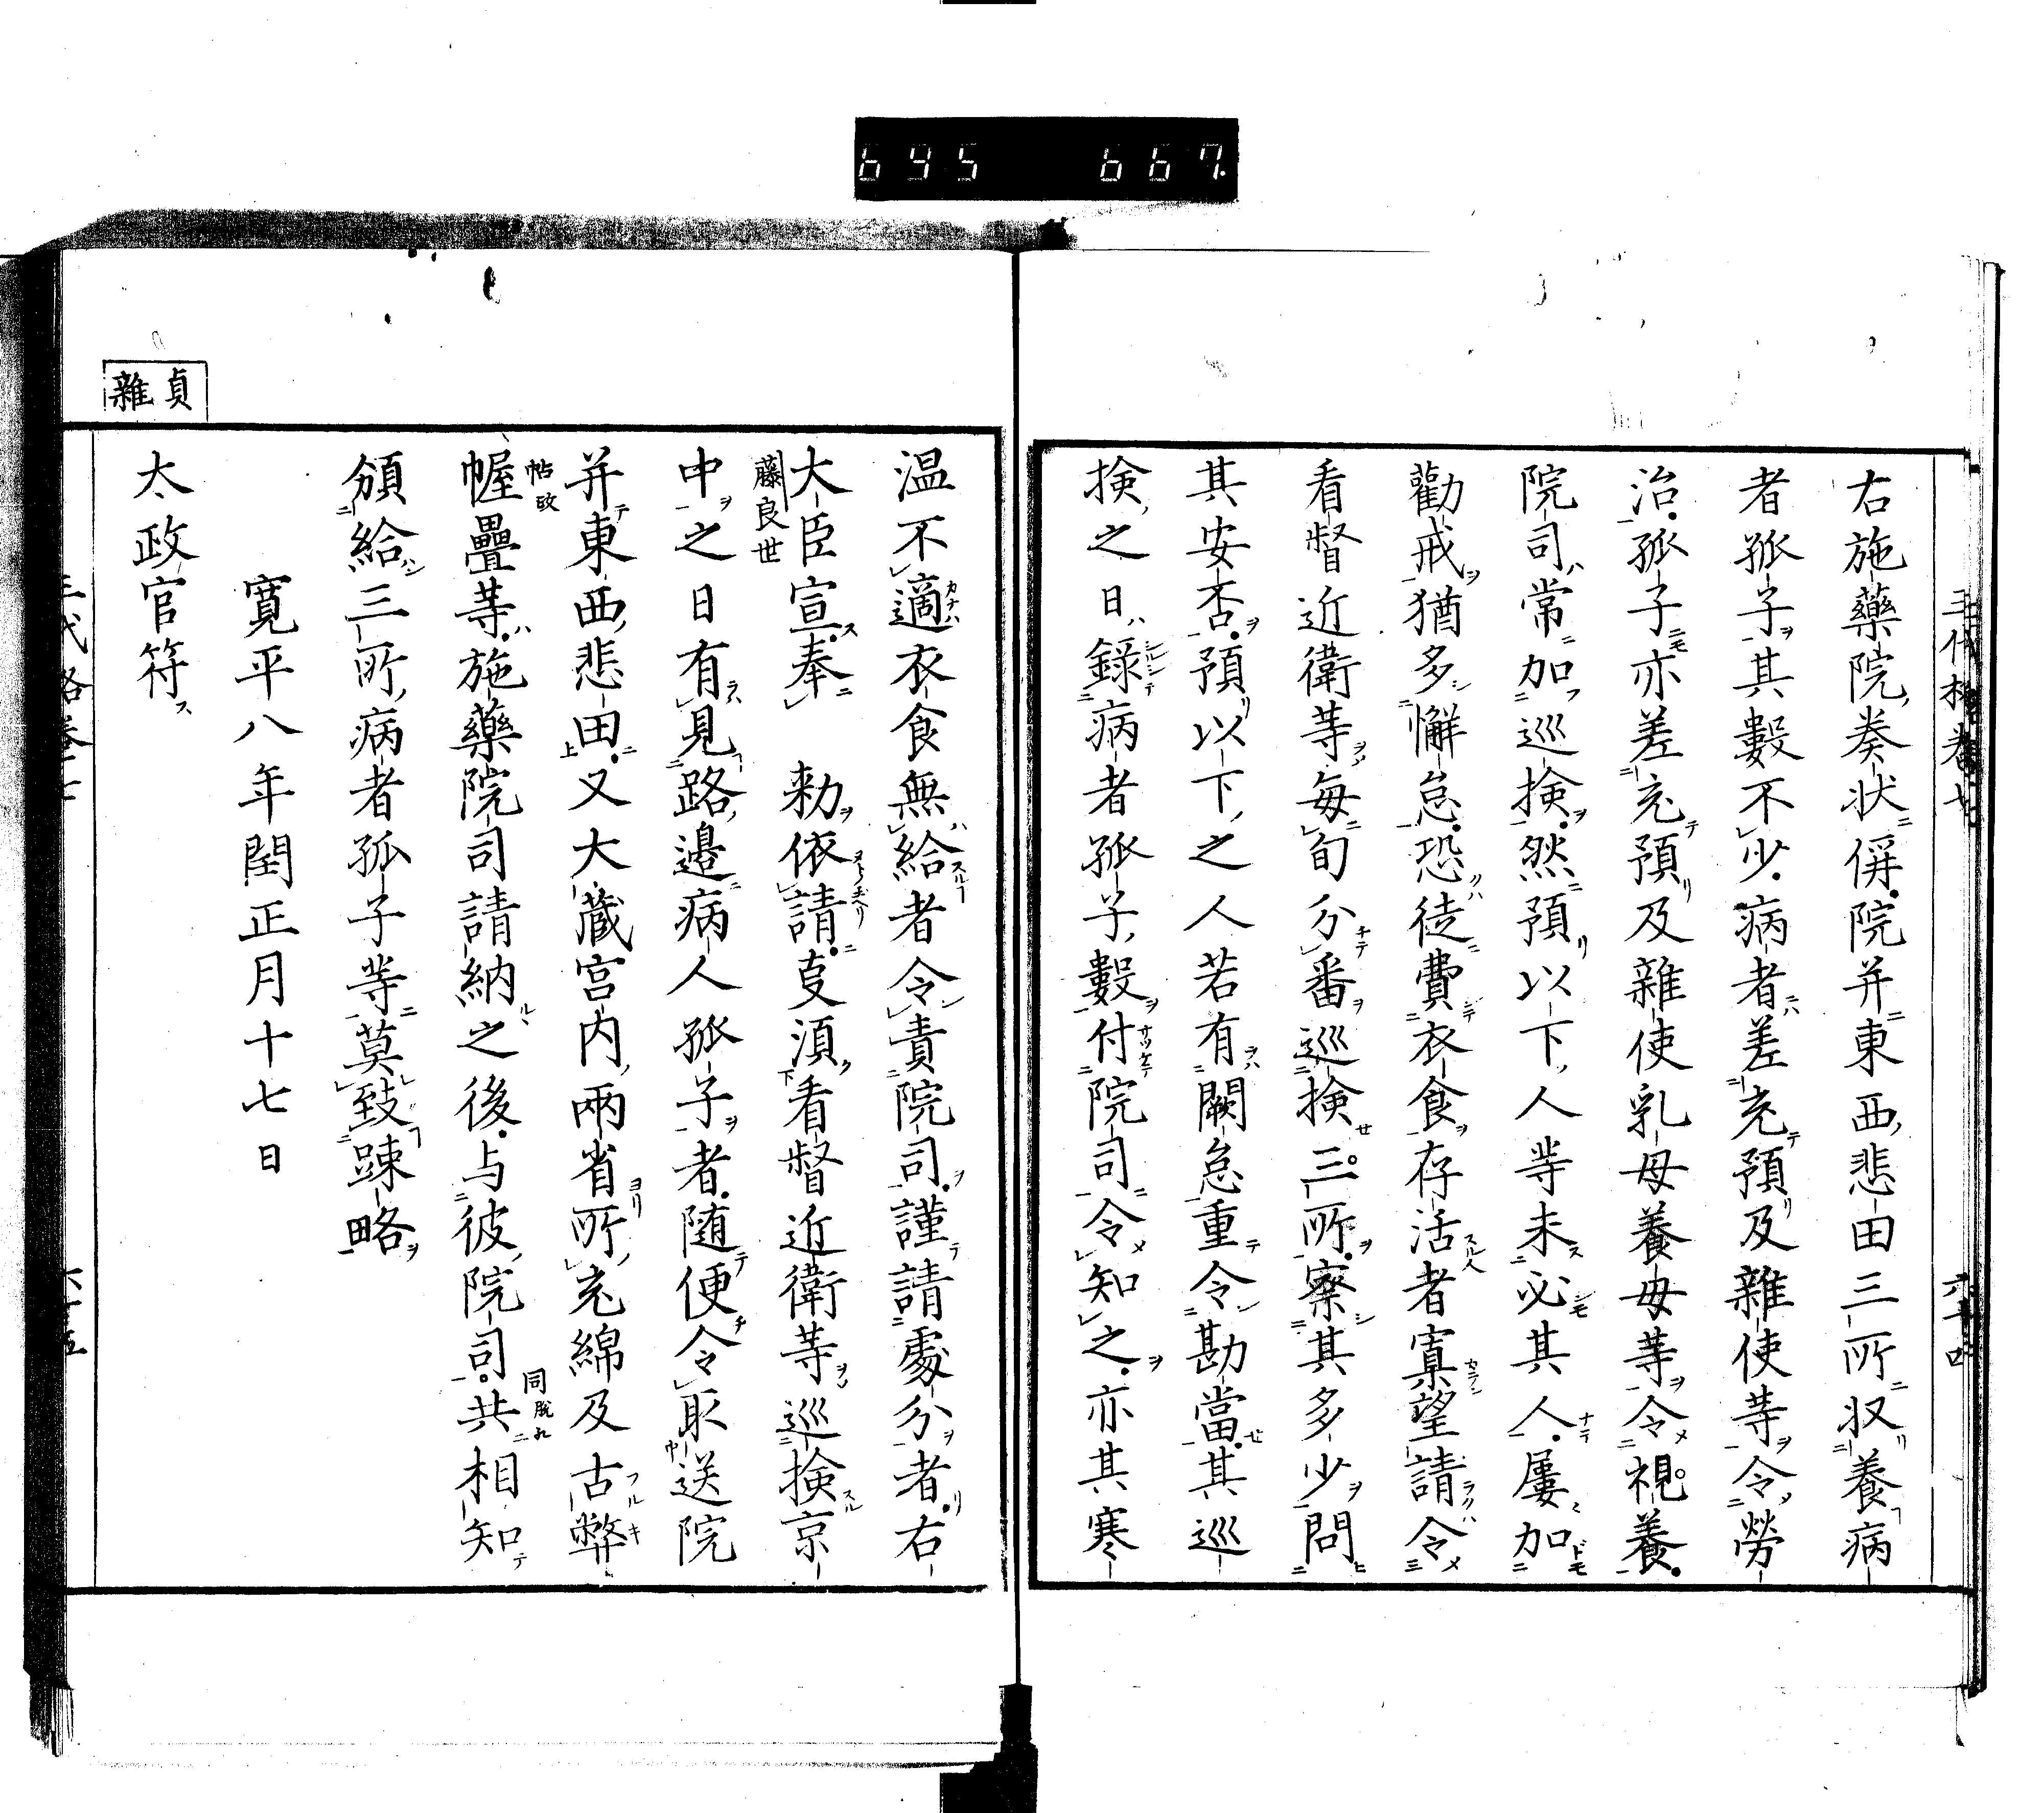 695 667
三代格卷七
六十四
右施藥院奏狀偁院并東西悲田三所収養病
者孤子其數不少病者差充預及雜使等令勞
治孤子亦差充預及雜使乳母養母等令視養
院司常加巡撿然預以下人等未必其人屢加
勸戒猶多懈怠恐徒費衣食存活者寡望請令
看督近衛等每旬分番巡撿三所察其多少問
其安否預以下之人若有闕怠重令勘當其巡
撿之日錄病者孤子數付院司令知之亦其寒
温不適衣食無給者令責院司謹請處分者右
大臣宣奉　勅依請㕝須看督近衛等巡撿京
藤良世
中之日有見路邊病人孤子者随便令取送院
并東西悲田又大藏宮内兩省所充綿及古弊
幄疊等施藥院司請納之後与彼院司共相知
帖㪅
頒給三所病者孤子等莫致踈略
寛平八年閏正月十七日
太政官符
貞
雜
三代格卷七
六十五